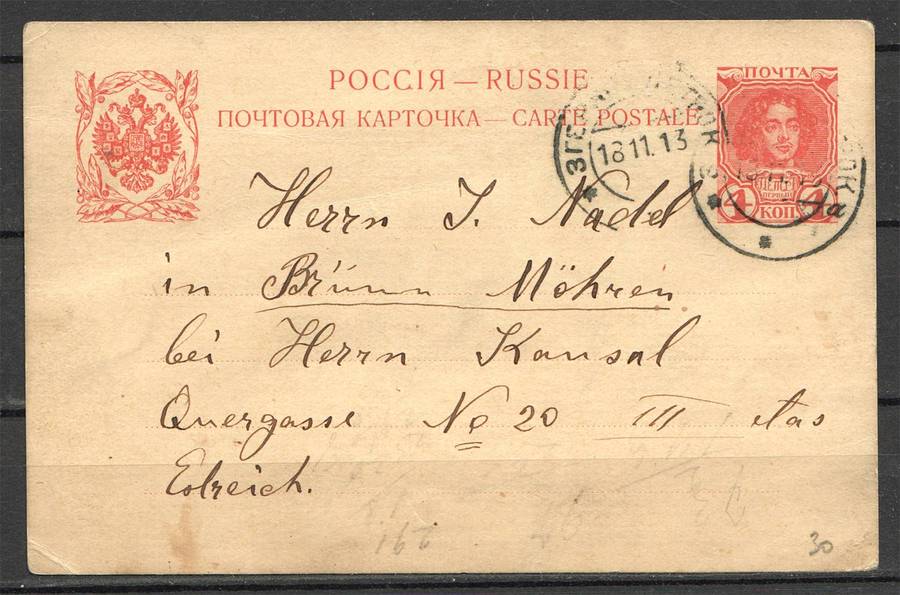 РОССІЯ — RUSSIE
ПОЧТОВАЯ КАРТОЧКА — CARTE POSTALE
ПОЧТА
18 11. 13
4 КОП 4
a
Herrn J. Nadel
in Brünn Möhren
bei Herrn Kansal
Quergasse No 20 III etas
Estreich.
291
30